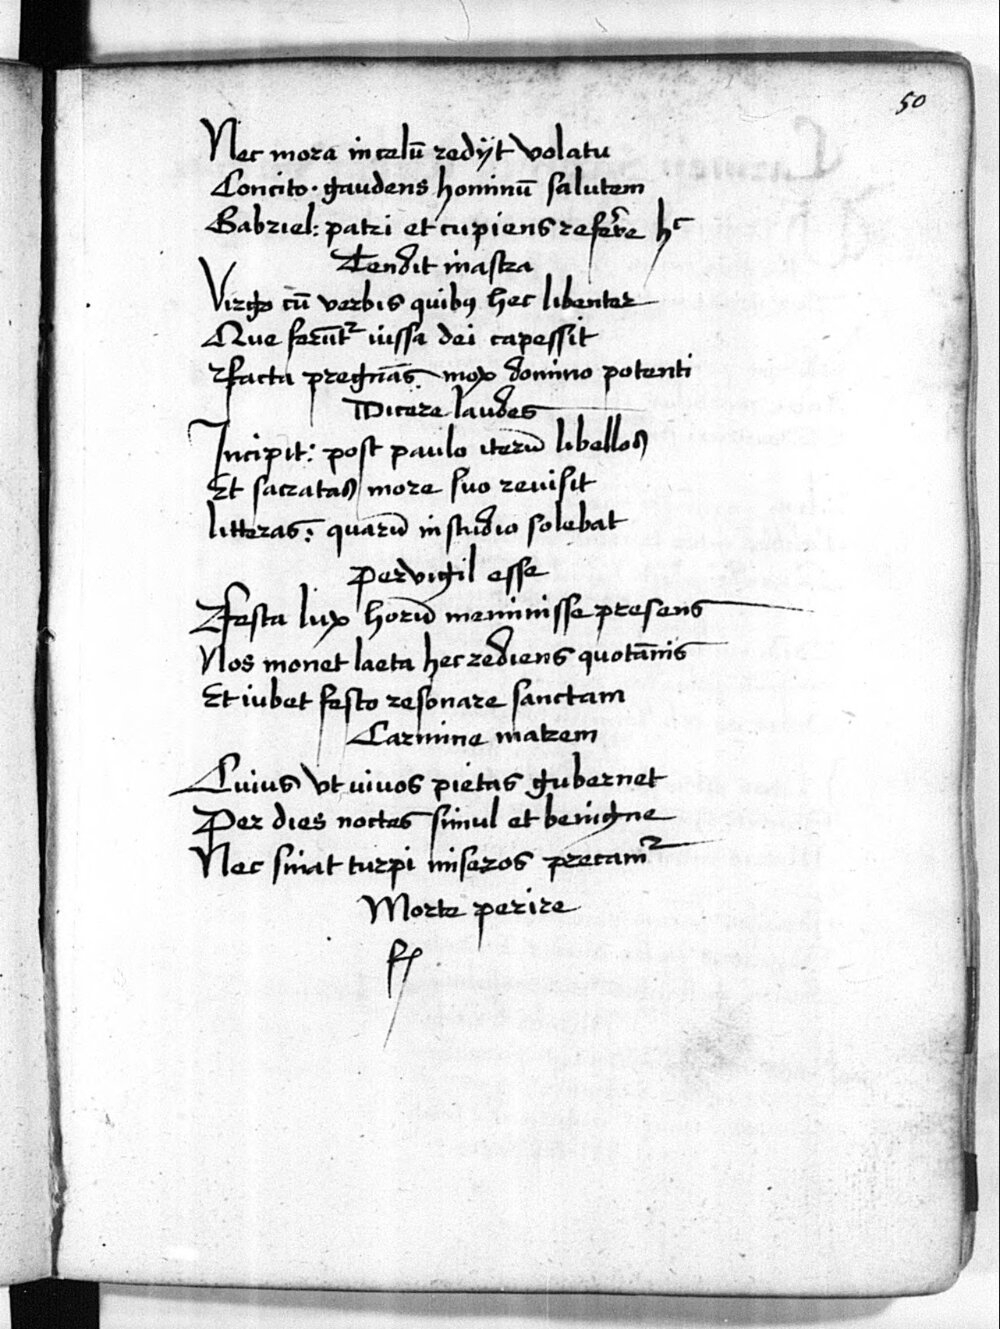 50
Nec mora in celū redijt volatu
Concito· gaudens hominū salutem
Gabriel: patri et cupiens referre hc
Tendit in astra
Virgo cū verbis quibus hec libenter
Que ferunt iussa dei capessit
facta pregnās mox domino potenti
Dicere laudes
Incipit: post paulo iterū libellos
Et sacratas more suo reuisit
litteras: quarū in studio solebat
Pervigil esse
festa lux horū meminisse presens
Nos monet laeta hec rediens quotānis
Et iubet festo resonare sanctam
Carmine matrem
Cuius vt viuos pietas gubernet
Per dies noctes simul et benigne
Nec sinat turpi miseros precamur
Morte perire